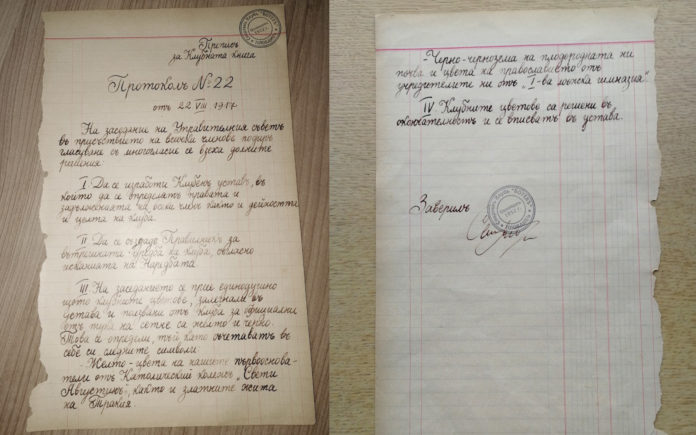 Преписъ
за Клубната книга
Протоколъ №22
отъ 22 VIII 1917.
На заседание на Управителния съветъ
въ присъствието на всички членове подиръ
гласуване съ многогласие се взеха долните
решения:
I. Да се изработи Клубенъ уставъ, въ
който да се определятъ правата и
задълженията на всеки членъ както и дейностьта
и целта на клуба.
II Да се създаде Правилникъ за
вътрешната уредба на клуба, съгласно
исканията на Наредбата.
III. На заседанието се прие единодушно
щото клубните цветове, залегнали въ
устава и ползвани отъ клуба за официални
отъ тука на сетне са жълто и черно.
Това се определи, тъй като съчетаватъ въ
себе си следните символи:
-Жълто - цвета на нашите първооснова-
тели отъ Католический колежъ „Свети
Августинъ", както и златните жита
на Тракия.
-Черно - чернозема на плодородната ни
почва и цвета на православието отъ
учредителите ни отъ „I-ва мъжска гимназия".
IV. Клубните цветове са решени въ
окончателность и се вписватъ въ устава.
Заверилъ